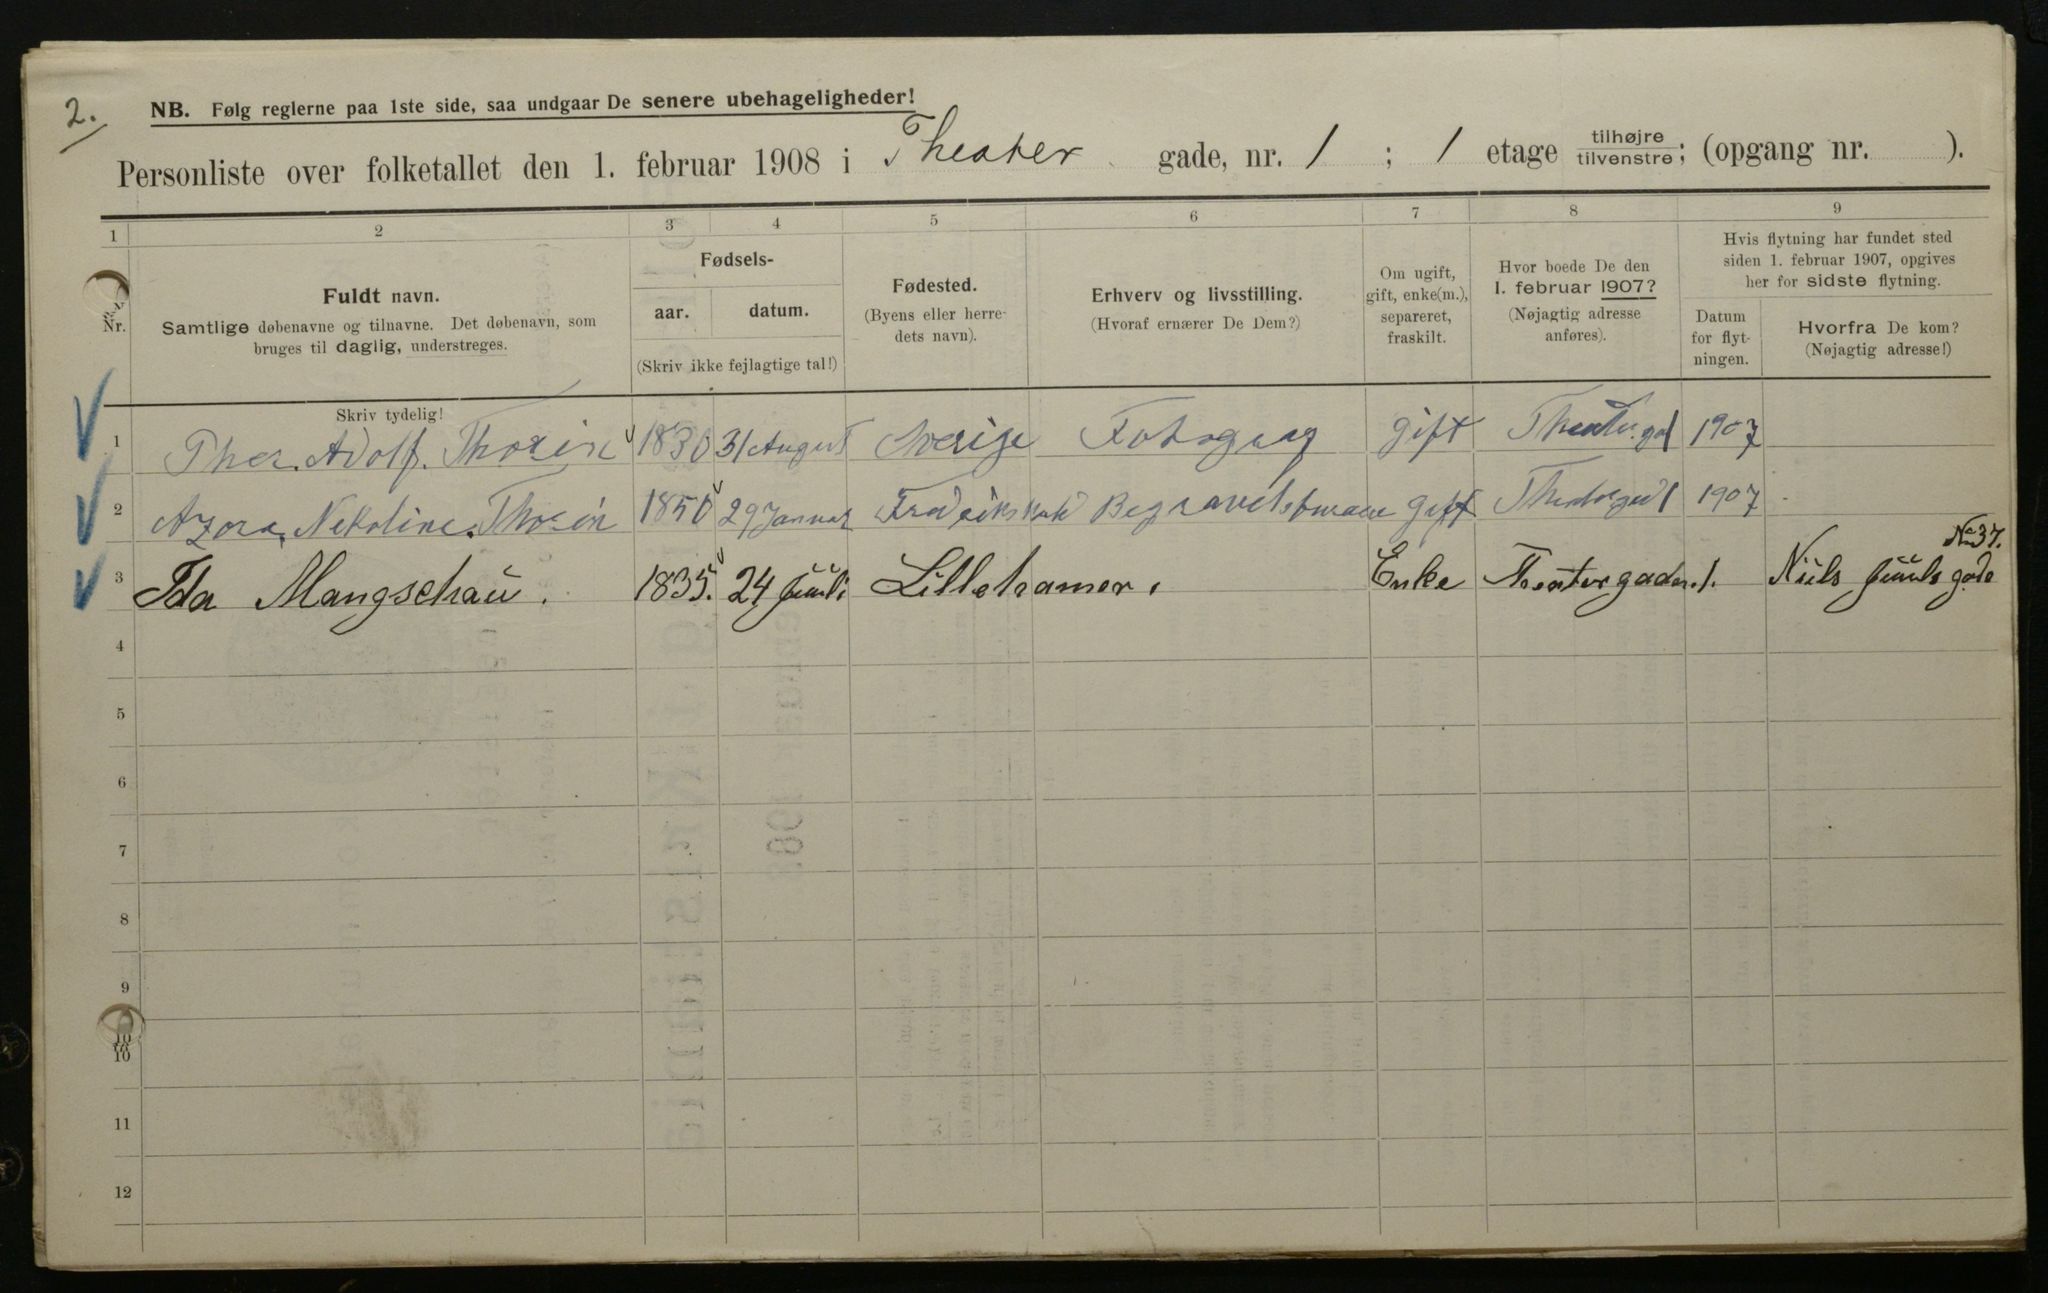 2.
NB. Følg reglerne paa 1ste side, saa undgaar De senere ubehageligheder!
Personliste over folketallet den 1. februar 1908 i Theater gade, nr. 1 ; 1 etage tilhøjre tilvenstre; (opgang nr. ).
1 2 3 4 5 6 7 8 9
Nr.
Fuldt navn.
Samtlige døbenavne og tilnavne. Det døbenavn, som
bruges til daglig, understreges.
Skriv tydelig!
Fødsels-
aar. datum.
(Skriv ikke fejlagtige tal!)
Fødested.
(Byens eller herre-
dets navn).
Erhverv og livsstilling.
(Hvoraf ernærer De Dem?)
Om ugift,
gift, enke(m.),
separeret,
fraskilt.
Hvor boede De den
1. februar 1907?
(Nøjagtig adresse
anføres).
Hvis flytning har fundet sted
siden 1. februar 1907, opgives
her for sidste flytning.
Datum
for flyt-
ningen.
Hvorfra De kom?
(Nøjagtig adresse!)
1 Adolf. Thorin 1830 31 August Sverige Fotograf gift 1907
2 Azora Nekoline Thorin 1850 29 Januar Begravelsbureau gift 1907
No 37.
3 Ida Mangschau. 1835. 24 Juuli Lillehamer. Enke Theatergaden 1. Niels Juuls gade
4
5
6
7
8
9
10
10
11
12